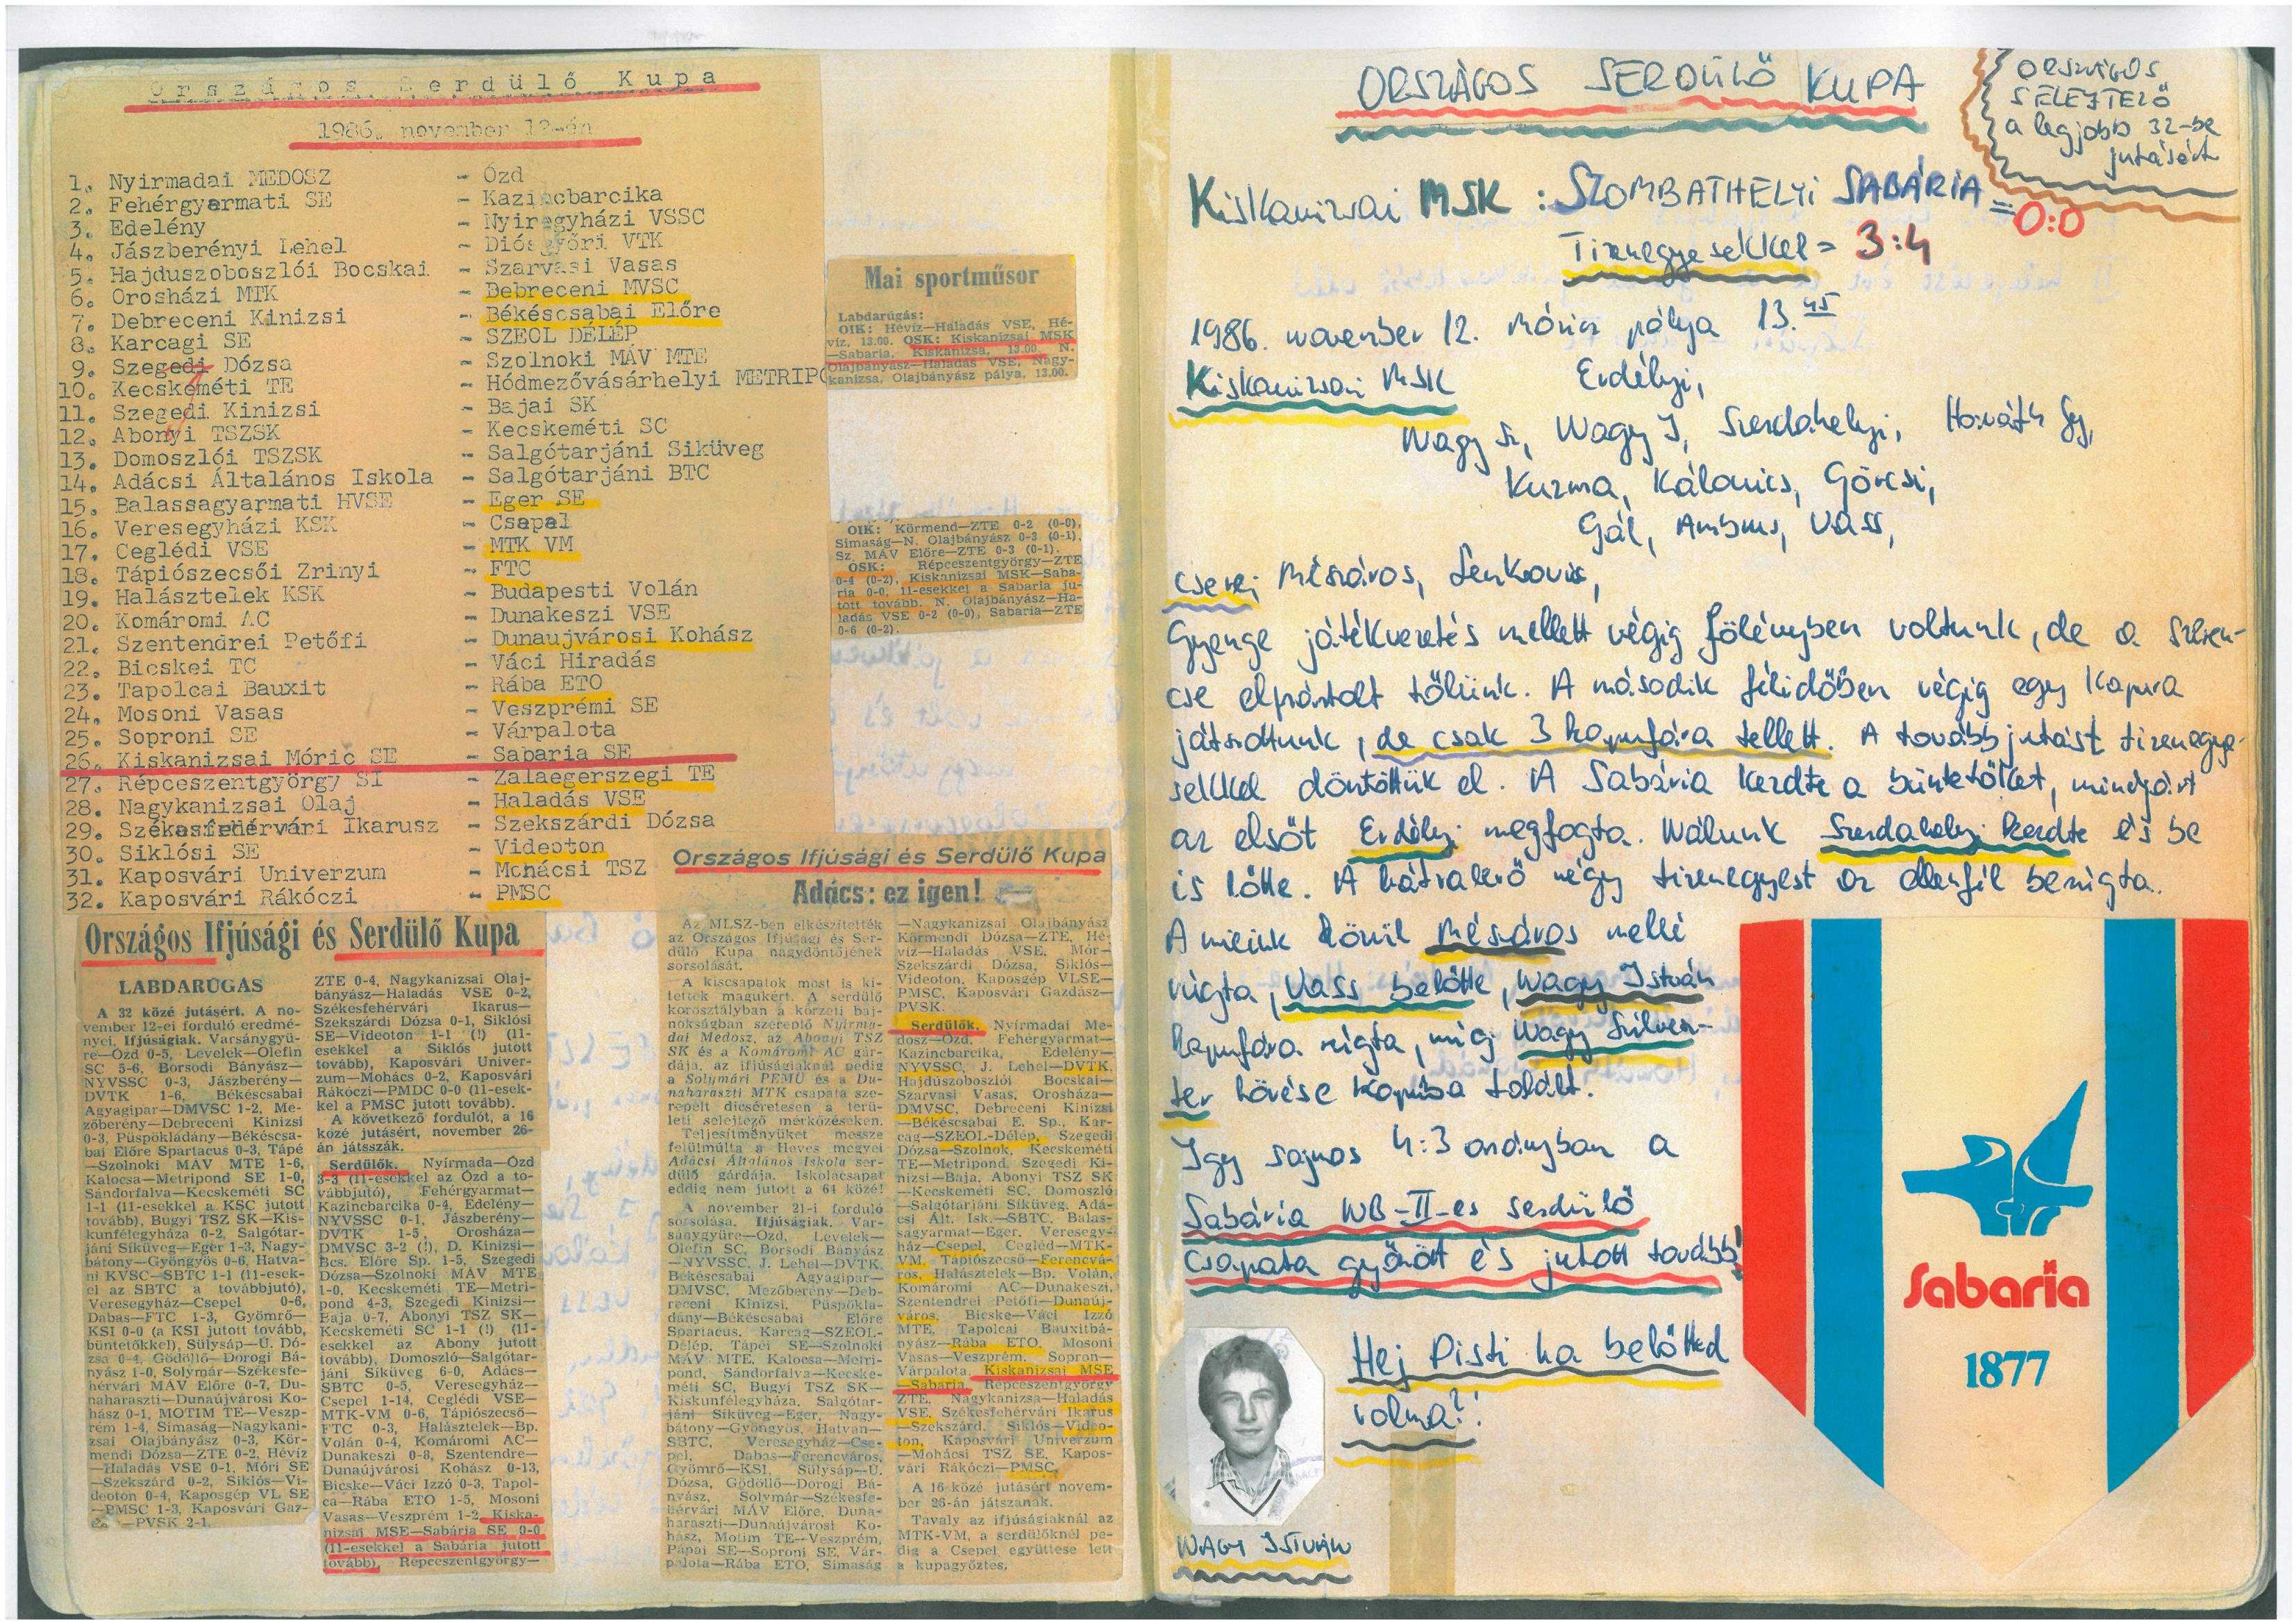 Országos Serdülő Kupa
1986. november 12-én
1. Nyirmadai MEDOSZ - Ózd
2. Fehérgyarmati SE - Kazincbarcika
3. Edelény - Nyiregyházi VSSC
4. Jászberényi Lehel - Diósgyőri VTK
5. Hajduszoboszlói Bocskai - Szarvasi Vasas
6. Orosházi MTK - Debreceni MVSC
7. Debreceni Kinizsi - Békéscsabai Előre
8. Karcagi SE - SZEOL DÉLÉP
9. Szegedi Dózsa - Szolnoki MÁV MTE
10. Kecskeméti TE - Hódmezővásárhelyi METRIPO
11. Szegedi Kinizsi - Bajai SK
12. Abonyi TSZSK - Kecskeméti SC
13. Domoszlói TSZSK - Salgótarjáni Siküveg
14. Adácsi Általános Iskola - Salgótarjáni BTC
15. Balassagyarmati HVSE - Eger SE
16. Veresegyházi KSK - Csepel
17. Ceglédi VSE - MTK VM
18. Tápiószecsői Zrinyi - FTC
19. Halásztelek KSK - Budapesti Volán
20. Komáromi AC - Dunakeszi VSE
21. Szentendrei Petőfi - Dunaujvárosi Kohász
22. Bicskei TC - Váci Hiradás
23. Tapolcai Bauxit - Rába ETO
24. Mosoni Vasas - Veszprémi SE
25. Soproni SE - Várpalota
26. Kiskanizsai Móric SE - Sabaria SE
27. Répceszentgyörgy SI - Zalaegerszegi TE
28. Nagykanizsai Olaj - Haladás VSE
29. Székesfehérvári Ikarusz - Szekszárdi Dózsa
30. Siklósi SE - Videoton
31. Kaposvári Univerzum - Mohácsi TSZ
32. Kaposvári Rákóczi - PMSC
Mai sportműsor
Labdarúgás:
OIK: Hévíz—Haladás VSE, Hé-
víz, 13.00. OSK: Kiskanizsai MSK
—Sabaria, Kiskanizsa, 13.00. N.
Olajbányász—Haladás VSE, Nagy-
kanizsa, Olajbányász pálya, 13.00.
OIK: Körmend—ZTE 0-2 (0-0),
Simaság—N. Olajbányász 0-3 (0-1),
Sz. MÁV Előre—ZTE 0-3 (0-1).
OSK: Répceszentgyörgy—ZTE
0-4 (0-2), Kiskanizsai MSK—Saba-
ria 0-0, 11-esekkel a Sabaria ju-
tott tovább. N. Olajbányász—Ha-
ladás VSE 0-2 (0-0), Sabaria—ZTE
0-6 (0-2).
Országos Ifjúsági és Serdülő Kupa
LABDARÚGÁS
A 32 közé jutásért. A no-
vember 12-ei forduló eredmé-
nyei. Ifjúságiak. Varsánygyü-
re—Ózd 0-5, Levelek—Olefin
SC 5-6, Borsodi Bányász—
NYVSSC 0-3, Jászberény—
DVTK 1-6, Békéscsabai
Agyagipar—DMVSC 1-2, Me-
zőberény—Debreceni Kinizsi
0-3, Püspökladány—Békéscsa-
bai Előre Spartacus 0-3, Tápé
—Szolnoki MÁV MTE 1-6,
Kalocsa—Metripond SE 1-0,
Sándorfalva—Kecskeméti SC
1-1 (11-esekkel a KSC jutott
tovább), Bugyi TSZ SK—Kis-
kunfélegyháza 0-2, Salgótar-
jáni Síküveg—Eger 1-3, Nagy-
bátony—Gyöngyös 0-6, Hatva-
ni KVSC—SBTC 1-1 (11-esek-
el az SBTC a továbbjutó),
Veresegyház—Csepel 0-6,
Dabas—FTC 1-3, Gyömrő—
KSI 0-0 (a KSI jutott tovább,
büntetőkkel), Sülysáp—Ú. Dó-
zsa 0-4, Gödöllő—Dorogi Bá-
nyász 1-0, Solymár—Székesfe-
hérvári MÁV Előre 0-7, Du-
naharaszti—Dunaújvárosi Ko-
hász 0-1, MOTIM TE—Veszp-
rém 1-4, Simaság—Nagykani-
zsai Olajbányász 0-3, Kör-
mendi Dózsa—ZTE 0-2, Hévíz
—Haladás VSE 0-1, Móri SE
—Szekszárd 0-2, Siklós—Vi-
deoton 0-4, Kaposgép VL SE
—PMSC 1-3, Kaposvári Gaz-
—PVSK 2-1.
ZTE 0-4, Nagykanizsai Olaj-
bányász—Haladás VSE 0-2,
Székesfehérvári Ikarus—
Szekszárdi Dózsa 0-1, Siklósi
SE—Videoton 1-1 (!) (11-
esekkel a Siklós jutott
tovább), Kaposvári Univer-
zum—Mohács 0-2, Kaposvári
Rákóczi—PMDC 0-0 (11-esek-
kel a PMSC jutott tovább).
A következő fordulót, a 16
közé jutásért, november 26-
án játsszák.
Serdülők. Nyírmada—Ózd
3-3 (11-esekkel az Ózd a to-
vábbjutó), Fehérgyarmat—
Kazincbarcika 0-4, Edelény—
NYVSSC 0-1, Jászberény—
DVTK 1-5, Orosháza—
DMVSC 3-2 (!), D. Kinizsi—
Bcs. Előre Sp. 1-5, Szegedi
Dózsa—Szolnoki MÁV MTE
1-0, Kecskeméti TE—Metri-
pond 4-3, Szegedi Kinizsi—
Baja 0-7, Abonyi TSZ SK—
Kecskeméti SC 1-1 (!) (11-
esekkel az Abony jutott
tovább), Domoszló—Salgótar-
jáni Síküveg 6-0, Adács—
SBTC 0-5, Veresegyház—
Csepel 1-14, Ceglédi VSE—
MTK-VM 0-6, Tápiószecső—
FTC 0-3, Halásztelek—Bp.
Volán 0-4, Komáromi AC—
Dunakeszi 0-8, Szentendre—
Dunaújvárosi Kohász 0-13,
Bicske—Váci Izzó 0-3, Tapol-
ca—Rába ETO 1-5, Mosoni
Vasas—Veszprém 1-2, Kiska-
nizsai MSE—Sabária SE 0-0
(11-esekkel a Sabária jutott
tovább), Répceszentgyörgy—
Országos Ifjúsági és Serdülő Kupa
Adács: ez igen!
Az MLSZ-ben elkészítették
az Országos Ifjúsági és Ser-
dülő Kupa nagydöntőjének
sorsolását.
A kiscsapatok most is ki-
tettek magukért. A serdülő
korosztályban a körzeti baj-
nokságban szereplő Nyírma-
dai Medosz, az Abonyi TSZ
SK és a Komáromi AC gár-
dája, az ifjúságiaknál pedig
a Solymári PEMÜ és a Du-
naharaszti MTK csapata sze-
repelt dicséretesen a terü-
leti selejtező mérkőzéseken.
Teljesítményüket messze
felülmúlta a Heves megyei
Adácsi Általános Iskola ser-
dülő gárdája. Iskolacsapat
eddig nem jutott a 64 közé!
A november 21-i forduló
sorsolása. Ifjúságiak. Var-
sánygyüre—Ózd, Levelek—
Olefin SC, Borsodi Bányász
—NYVSSC, J. Lehel—DVTK,
Békéscsabai Agyagipar—
DMVSC, Mezőberény—Deb-
receni Kinizsi, Püspökla-
dány—Békéscsabai Előre
Spartacus, Karcag—SZEOL-
Délép, Tápéi SE—Szolnoki
MÁV MTE, Kalocsa—Metri-
pond, Sándorfalva—Kecske-
méti SC, Bugyi TSZ SK—
Kiskunfélegyháza, Salgótar-
jáni Síküveg—Eger, Nagy-
bátony—Gyöngyös, Hatvan—
SBTC, Veresegyház—Cse-
pel, Dabas—Ferencváros,
Gyömrő—KSI, Sülysáp—Ú.
Dózsa, Gödöllő—Dorogi Bá-
nyász, Solymár—Székesfe-
hérvári MÁV Előre, Duna-
haraszti—Dunaújvárosi Ko-
hász, Motim TE—Veszprém,
Pápai SE—Soproni SE, Vár-
palota—Rába ETO, Simaság
—Nagykanizsai Olajbányász
Körmendi Dózsa—ZTE, Hé-
víz—Haladás VSE, Mór—
Szekszárdi Dózsa, Siklós—
Videoton, Kaposgép VLSE—
PMSC, Kaposvári Gazdász—
PVSK.
Serdülők. Nyírmadai Me-
dosz—Ózd, Fehérgyarmat—
Kazincbarcika, Edelény—
NYVSSC, J. Lehel—DVTK,
Hajdúszoboszlói Bocskai—
Szarvasi Vasas, Orosháza—
DMVSC, Debreceni Kinizsi
—Békéscsabai E. Sp., Kar-
cag—SZEOL-Délép, Szegedi
Dózsa—Szolnok, Kecskeméti
TE—Metripond, Szegedi Ki-
nizsi—Baja, Abonyi TSZ SK
—Kecskeméti SC, Domoszló
—Salgótarjáni Síküveg, Adá-
csi Ált. Isk.—SBTC, Balas-
sagyarmat—Eger, Veresegy-
ház—Csepel, Cegléd—MTK-
VM, Tápiószecső—Ferencvá-
ros, Halásztelek—Bp. Volán,
Komáromi AC—Dunakeszi,
Szentendrei Petőfi—Dunaúj-
város, Bicske—Váci Izzó
MTE, Tapolcai Bauxitbá-
nyász—Rába ETO, Mosoni
Vasas—Veszprém, Sopron—
Várpalota, Kiskanizsai MSE
—Sabaria, Répceszentgyörgy
ZTE, Nagykanizsa—Haladás
VSE, Székesfehérvári Ikarus
—Szekszárd, Siklós—Video-
ton, Kaposvári Univerzum
—Mohácsi TSZ SE, Kapos-
vári Rákóczi—PMSC.
A 16 közé jutásért novem-
ber 26-án játszanak.
Tavaly az ifjúságiaknál az
MTK-VM, a serdülőknél pe-
dig a Csepel együttese lett
a kupagyőztes.
ORSZÁGOS SERDÜLŐ KUPA
ORSZÁGOS
SELEJTEZŐ
a legjobb 32-be
jutásért
Kiskanizsai MSK : SZOMBATHELYI SABÁRIA = 0:0
Tizenegyesekkel = 3:4
1986. november 12. Móricz pálya 13.45
Kiskanizsai MSK Erdélyi,
Nagy Sz, Nagy I, Szerdahelyi, Horváth Gy,
Kuzma, Kálovics, Göncsi,
Gál, Ambrus, Vass,
csere: Mészáros, Lenkovics,
Gyenge játékvezetés mellett végig fölényben voltunk, de a szeren-
cse elpártolt tőlünk. A második félidőben végig egy kapura
játszottunk, de csak 3 kapufára tellett. A továbbjutást tizenegye-
sekkel döntöttük el. A Sabária kezdte a büntetőket, mindjárt
az elsőt Erdélyi megfogta. Nálunk Szerdahelyi kezdte és be
is lőtte. A hátralevő négy tizenegyest az ellenfél berúgta.
A mieink közül Mészáros mellé
rúgta, Vass belőtte, Nagy István
kapufára rúgta, míg Nagy Szilvesz-
ter lövése kapuba talált.
Igy sajnos 4:3 arányban a
Sabária NB-II-es serdülő
csapata győzött és jutott tovább!
Hej Pisti ha belőtted
volna?!
NAGY ISTVÁN
Sabaria
1877